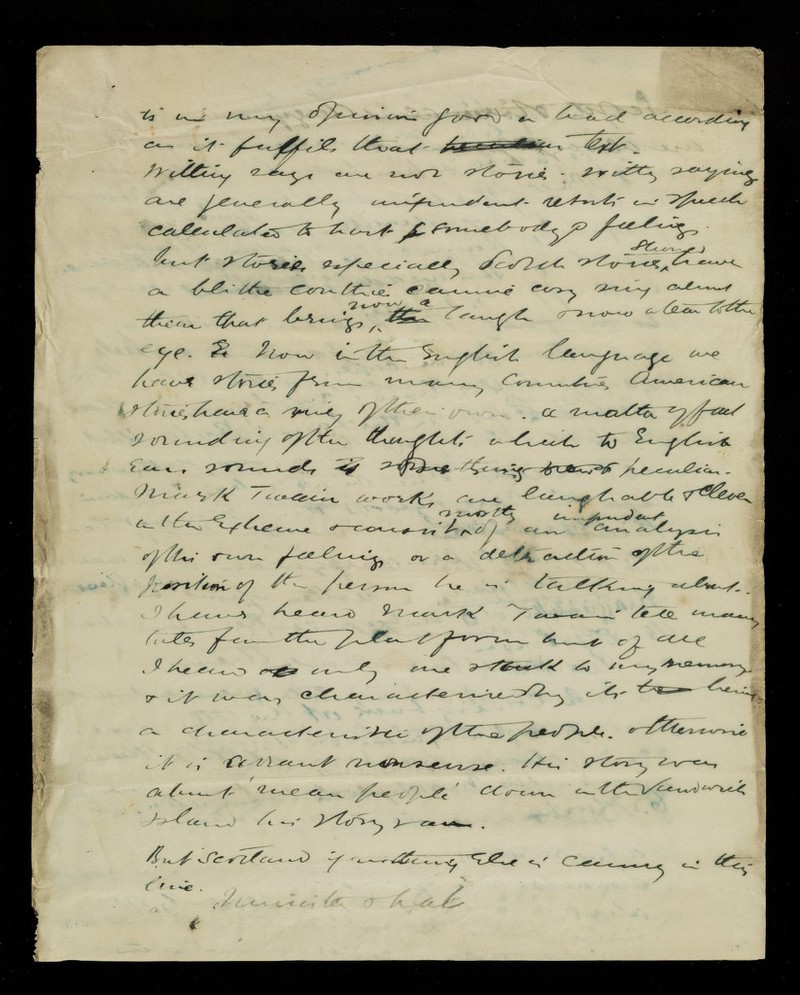 is in my opinion good or bad according
as it fulfils that test.
Witty says are not stories. Witty sayings
are generally impudent retorts in speech
calculated to hurt somebodys feelings.
But stories especially Scotch stories should have
a blithe couthie cannie cosy ring about
them that brings now a laugh & now a tear to the
eye. Now in the English language we
have stories from many Countries American
stories have a ring of their own. a matter of fact
sounding of the thoughts which to English
Ears sounds something peculiar.
Mark Twain works are laughable & clever
in the Extreme & consist mostly of an impudent analysis
of his own feelings or a detraction of the
position of the person he is talking about.
I have heard Mark Twain tell many
tales from the platform but of all
I heard only one stuck to my memory
& it was characterised by its being
a characteristic of the people. otherwise
it is arrant nonsense. His story was
about 'mean people' down in the Sandwich
Island his story ran.
But Scotland if nothing Else is canny in this
line.
Minister & hat